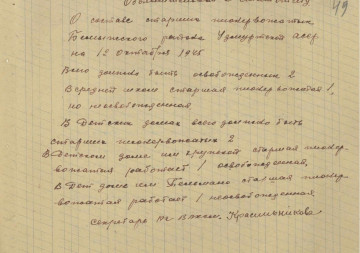 49
О составе старших пионервожатых
района Удмуртской асср
на 12 октября 1945
Всего должно быть освобожденных 2
В средней школе старшая пионервожатая 1,
но неосвобожденная
В Детских домах всего должно быть
старших пионервожатых 2
В Детском доме им старшая пионер-
вожатая работает 1 освобожденная.
В Дет доме им старшая пионер-
вожатая работает 1 неосвобожденная
Секретарь Красильникова